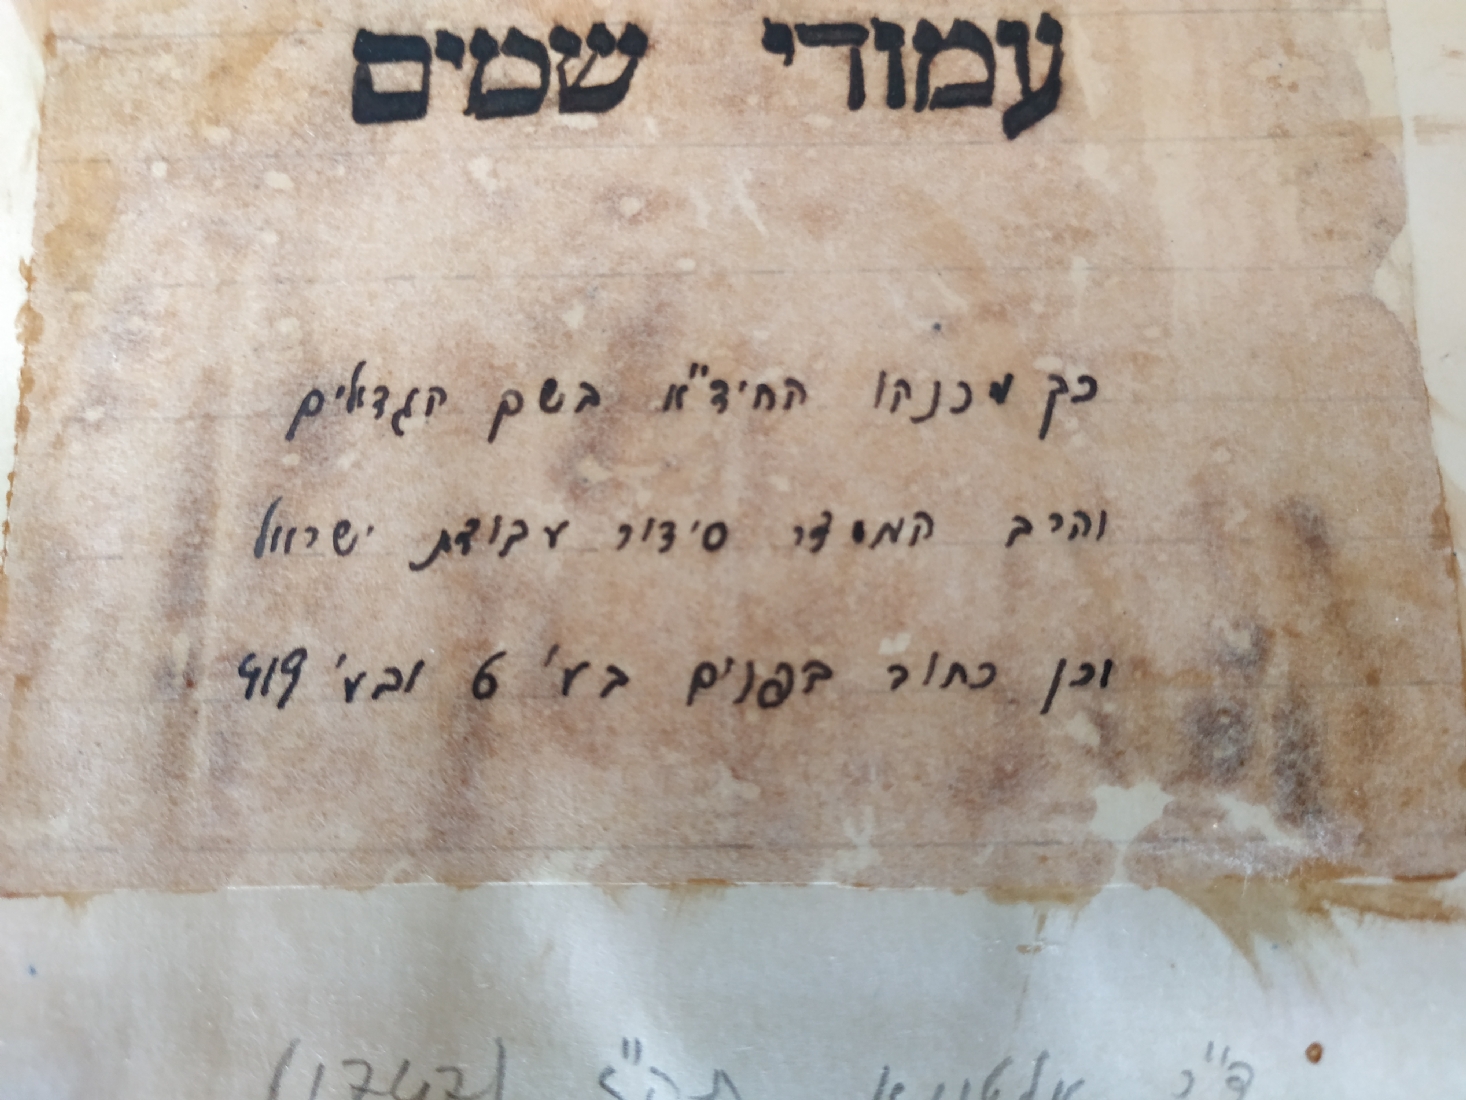 עמודי שמים
כך מכנהו החיד"א בשם הגדולים
והרב המסדר סידור עבודת ישראל
וכן כתוב בפנים בע' 6 ובע' 419
ד"ר אלטונא תק"ז